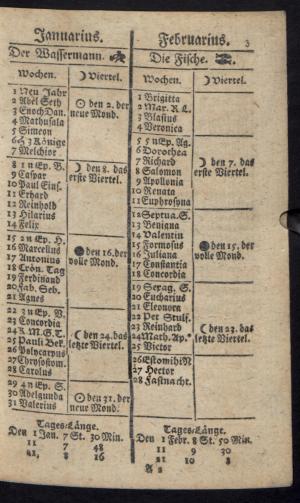 Januarius.
Der Wassermann.
Wochen. ☽ Viertel.
1 Neu Jahr
2 Abel Seth
3 Enoch Dan.
4 Methusala
5 Simeon
6 3 Könige
7 Melchior
☉ den 2. der
neue Mond.
8 1 n Ep. B.
9 Caspar
10 Paul Eins.
11 Erhard
12 Reinhold
13 Hilarius
14 Felix
☽ den 8. das
erste Viertel.
15 2 n Ep. H.
16 Marcellus
17 Antonius
18 Crön. Tag
19 Ferdinand
20 Fab. Seb.
21 Agnes
den 16. der
volle Mond.
22 3 n Ep. V.
23 Concordia
24 K. M. G. T.
25 Pauli Bek.
26 Polycarpus
27 Chrysostom.
28 Carolus
☾ den 24. das
letzte Viertel.
29 4 n Ep. S.
30 Adelgunda
31 Valerius
☉ den 31. der
neue Mond.
Tages-Länge.
Den 1 Jan. 7 St. 30 Min.
11 7 48
21, 8 16
Februarius. 3
Die Fische.
Wochen. ☽ Viertel.
1 Brigitta
2 Mar. R L.
3 Blasius
4 Veronica
5 5 n Ep. Ag.
6 Dorothea
7 Richard
8 Salomon
9 Apollonia
10 Renata
11 Euphrosyna
☾ den 7. das
erste Viertel.
12 Septua. S.
13 Benigna
14 Valentin
15 Formosus
16 Juliana
17 Constantia
18 Concordia
den 15. der
volle Mond.
19 Sexag. S.
20 Eucharius
21 Eleonora
22 Pet. Stulf.
23 Reinhard
24 Math. Ap.*
25 Victor
☾ den 23. das
letzte Viertel.
26 Estomihi N
27 Hector
28 Fastnacht.
Tages-Länge.
Den 1 Febr. 8 St. 50 Min.
11 9 30
21 10 8
A 2